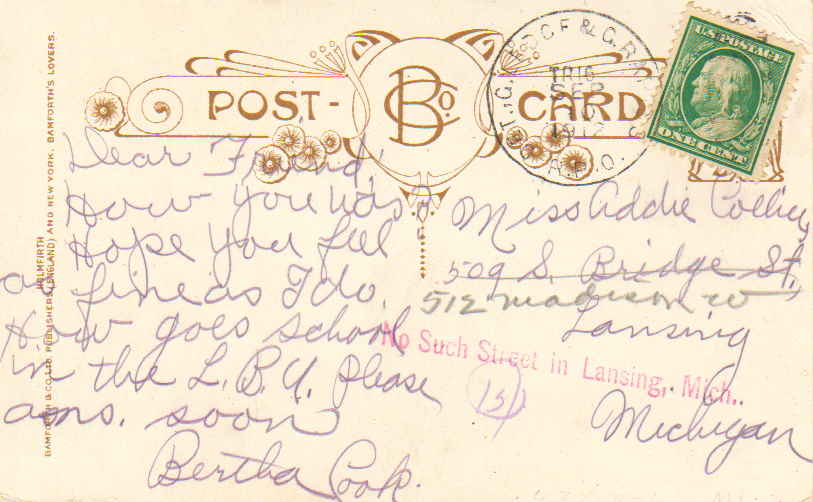 POST-
B Co
CARD
TRIP
SEP
10
1912
R.P.O.
U.S. POSTAGE
ONE CENT
Dear Friend,
How you was?
Hope you feel
as fine as I do.
How goes school
in the L.B.U. Please
ans. soon
Bertha Cook.
Miss Addie Collier,
509 S. Bridge St,
512 madison w
Lansing
No Such Street in Lansing, Mich..
15
Michigan
HOLMFIRTH
BAMFORTH & CO. LTD. PUBLISHERS (ENGLAND) AND NEW YORK. BAMFORTH'S LOVERS.